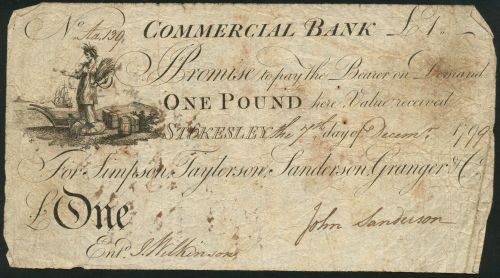 No. Sta,139, COMMERCIAL BANK £1.–.–
I Promise to pay the Bearer on Demand
ONE POUND here Value received
STOKESLEY the 7th day of Decemr. 1799
For Simpson, Taylerson, Sanderson, Granger & Co.
£ One John Sanderson
Entd. J. Wilkinson